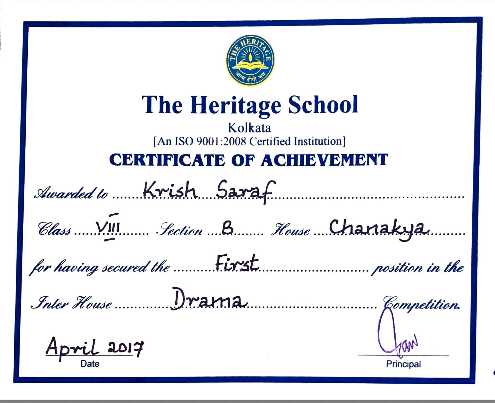 THE HERITAGE
The Heritage School
Kolkata
[An ISO 9001:2008 Certified Institution]
CERTIFICATE OF ACHIEVEMENT
Awarded to Krish Saraf
Class VIII Section B House Chanakya
for having secured the First position in the
Inter House Drama Competition.
April 2017
Date
Principal